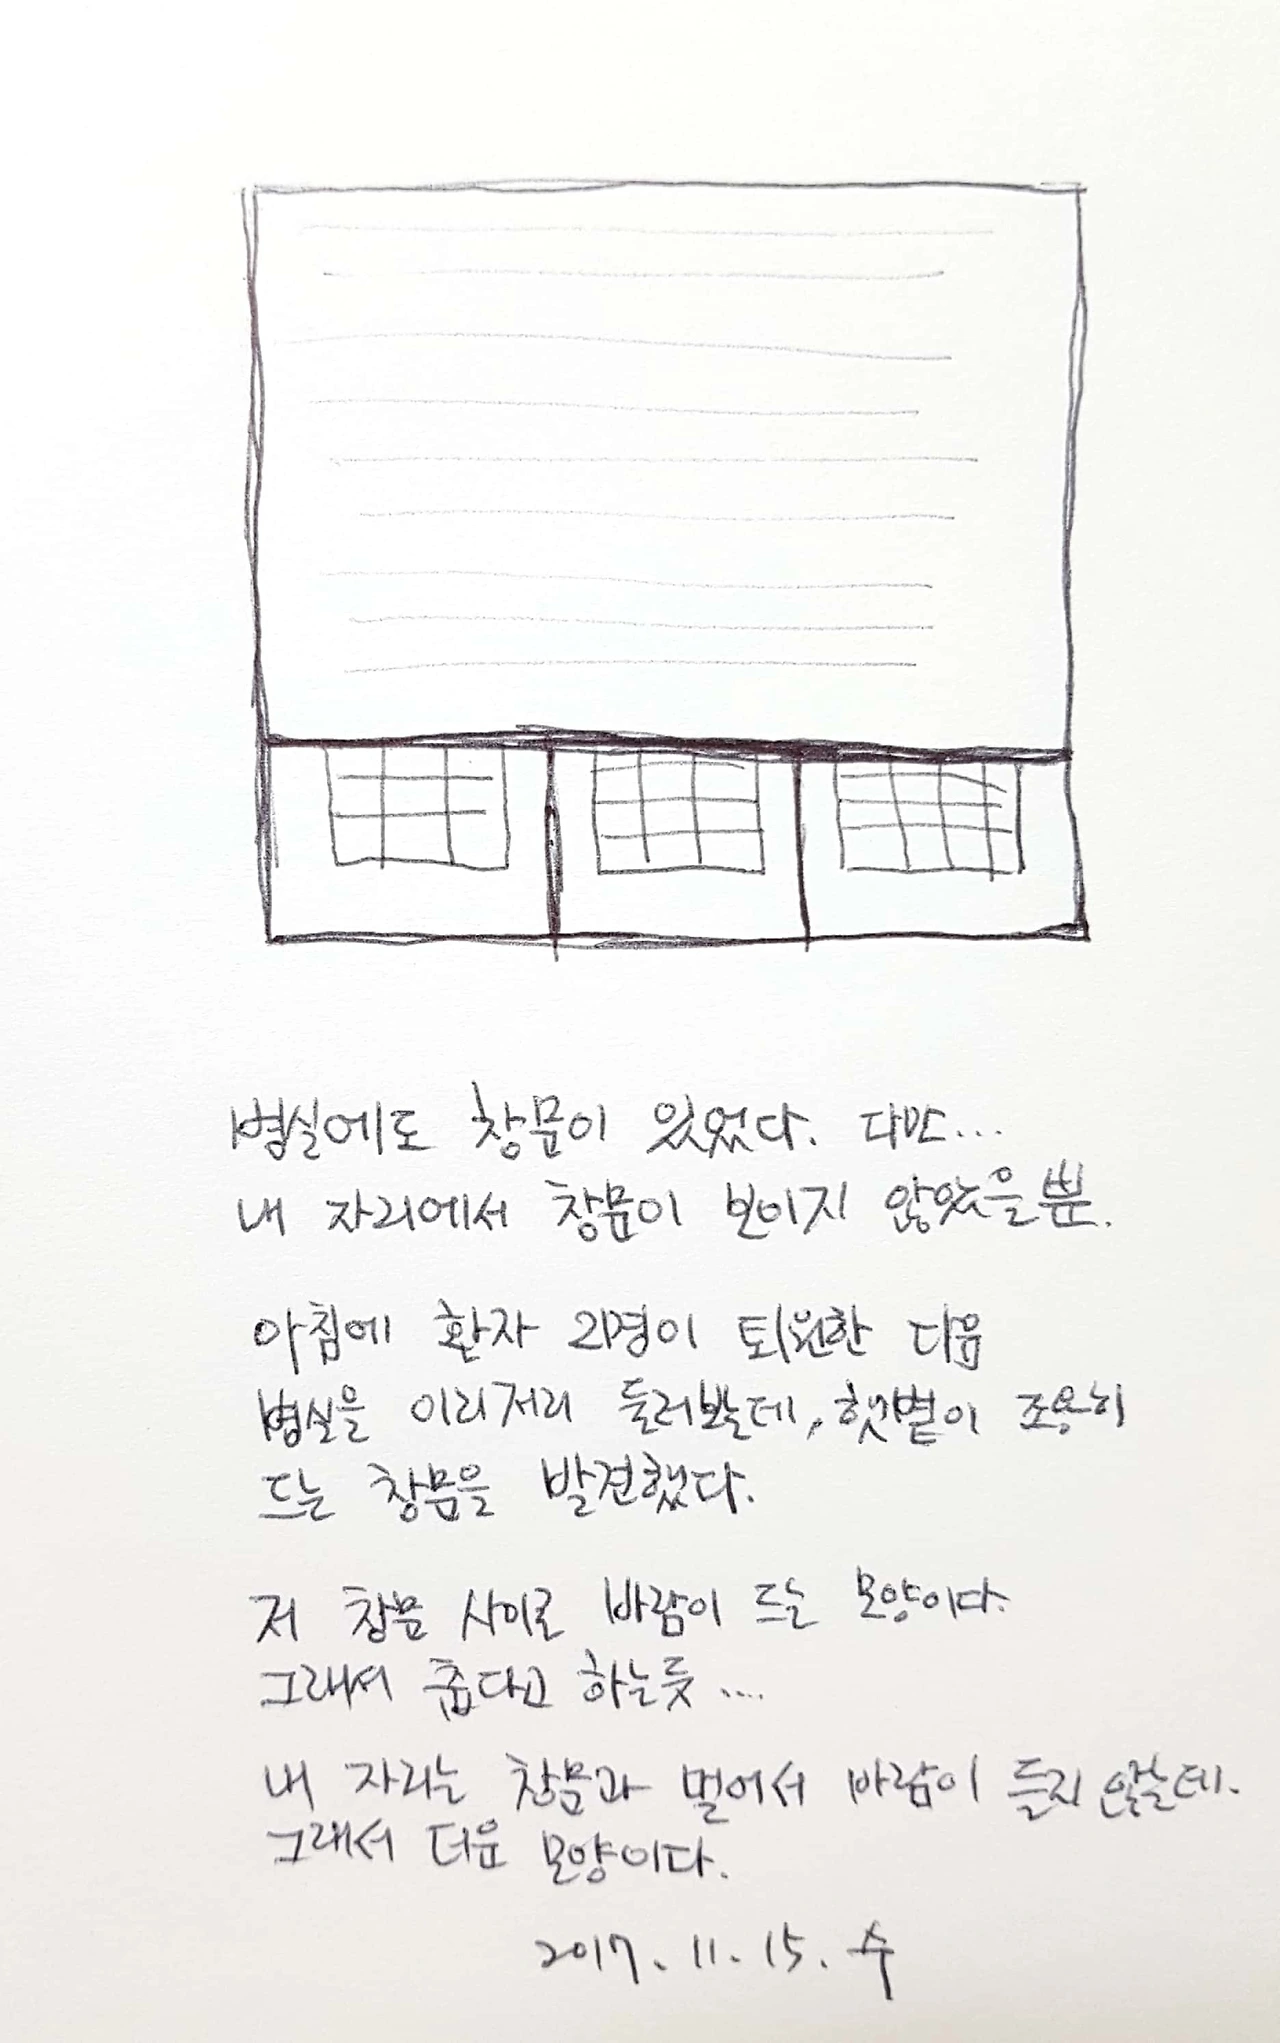 병실에도 창문이 있었다. 다만...
내 자리에서 창문이 보이지 않았을뿐.
아침에 환자 2명이 퇴원한 다음
병실을 이리저리 둘러보는데, 햇볕이 조용히
드는 창문을 발견했다.
저 창문 사이로 바람이 드는 모양이다.
그래서 춥다고 하는듯....
내 자리는 창문과 멀어서 바람이 들지 않는데.
그래서 더운 모양이다.
2017. 11. 15. 수